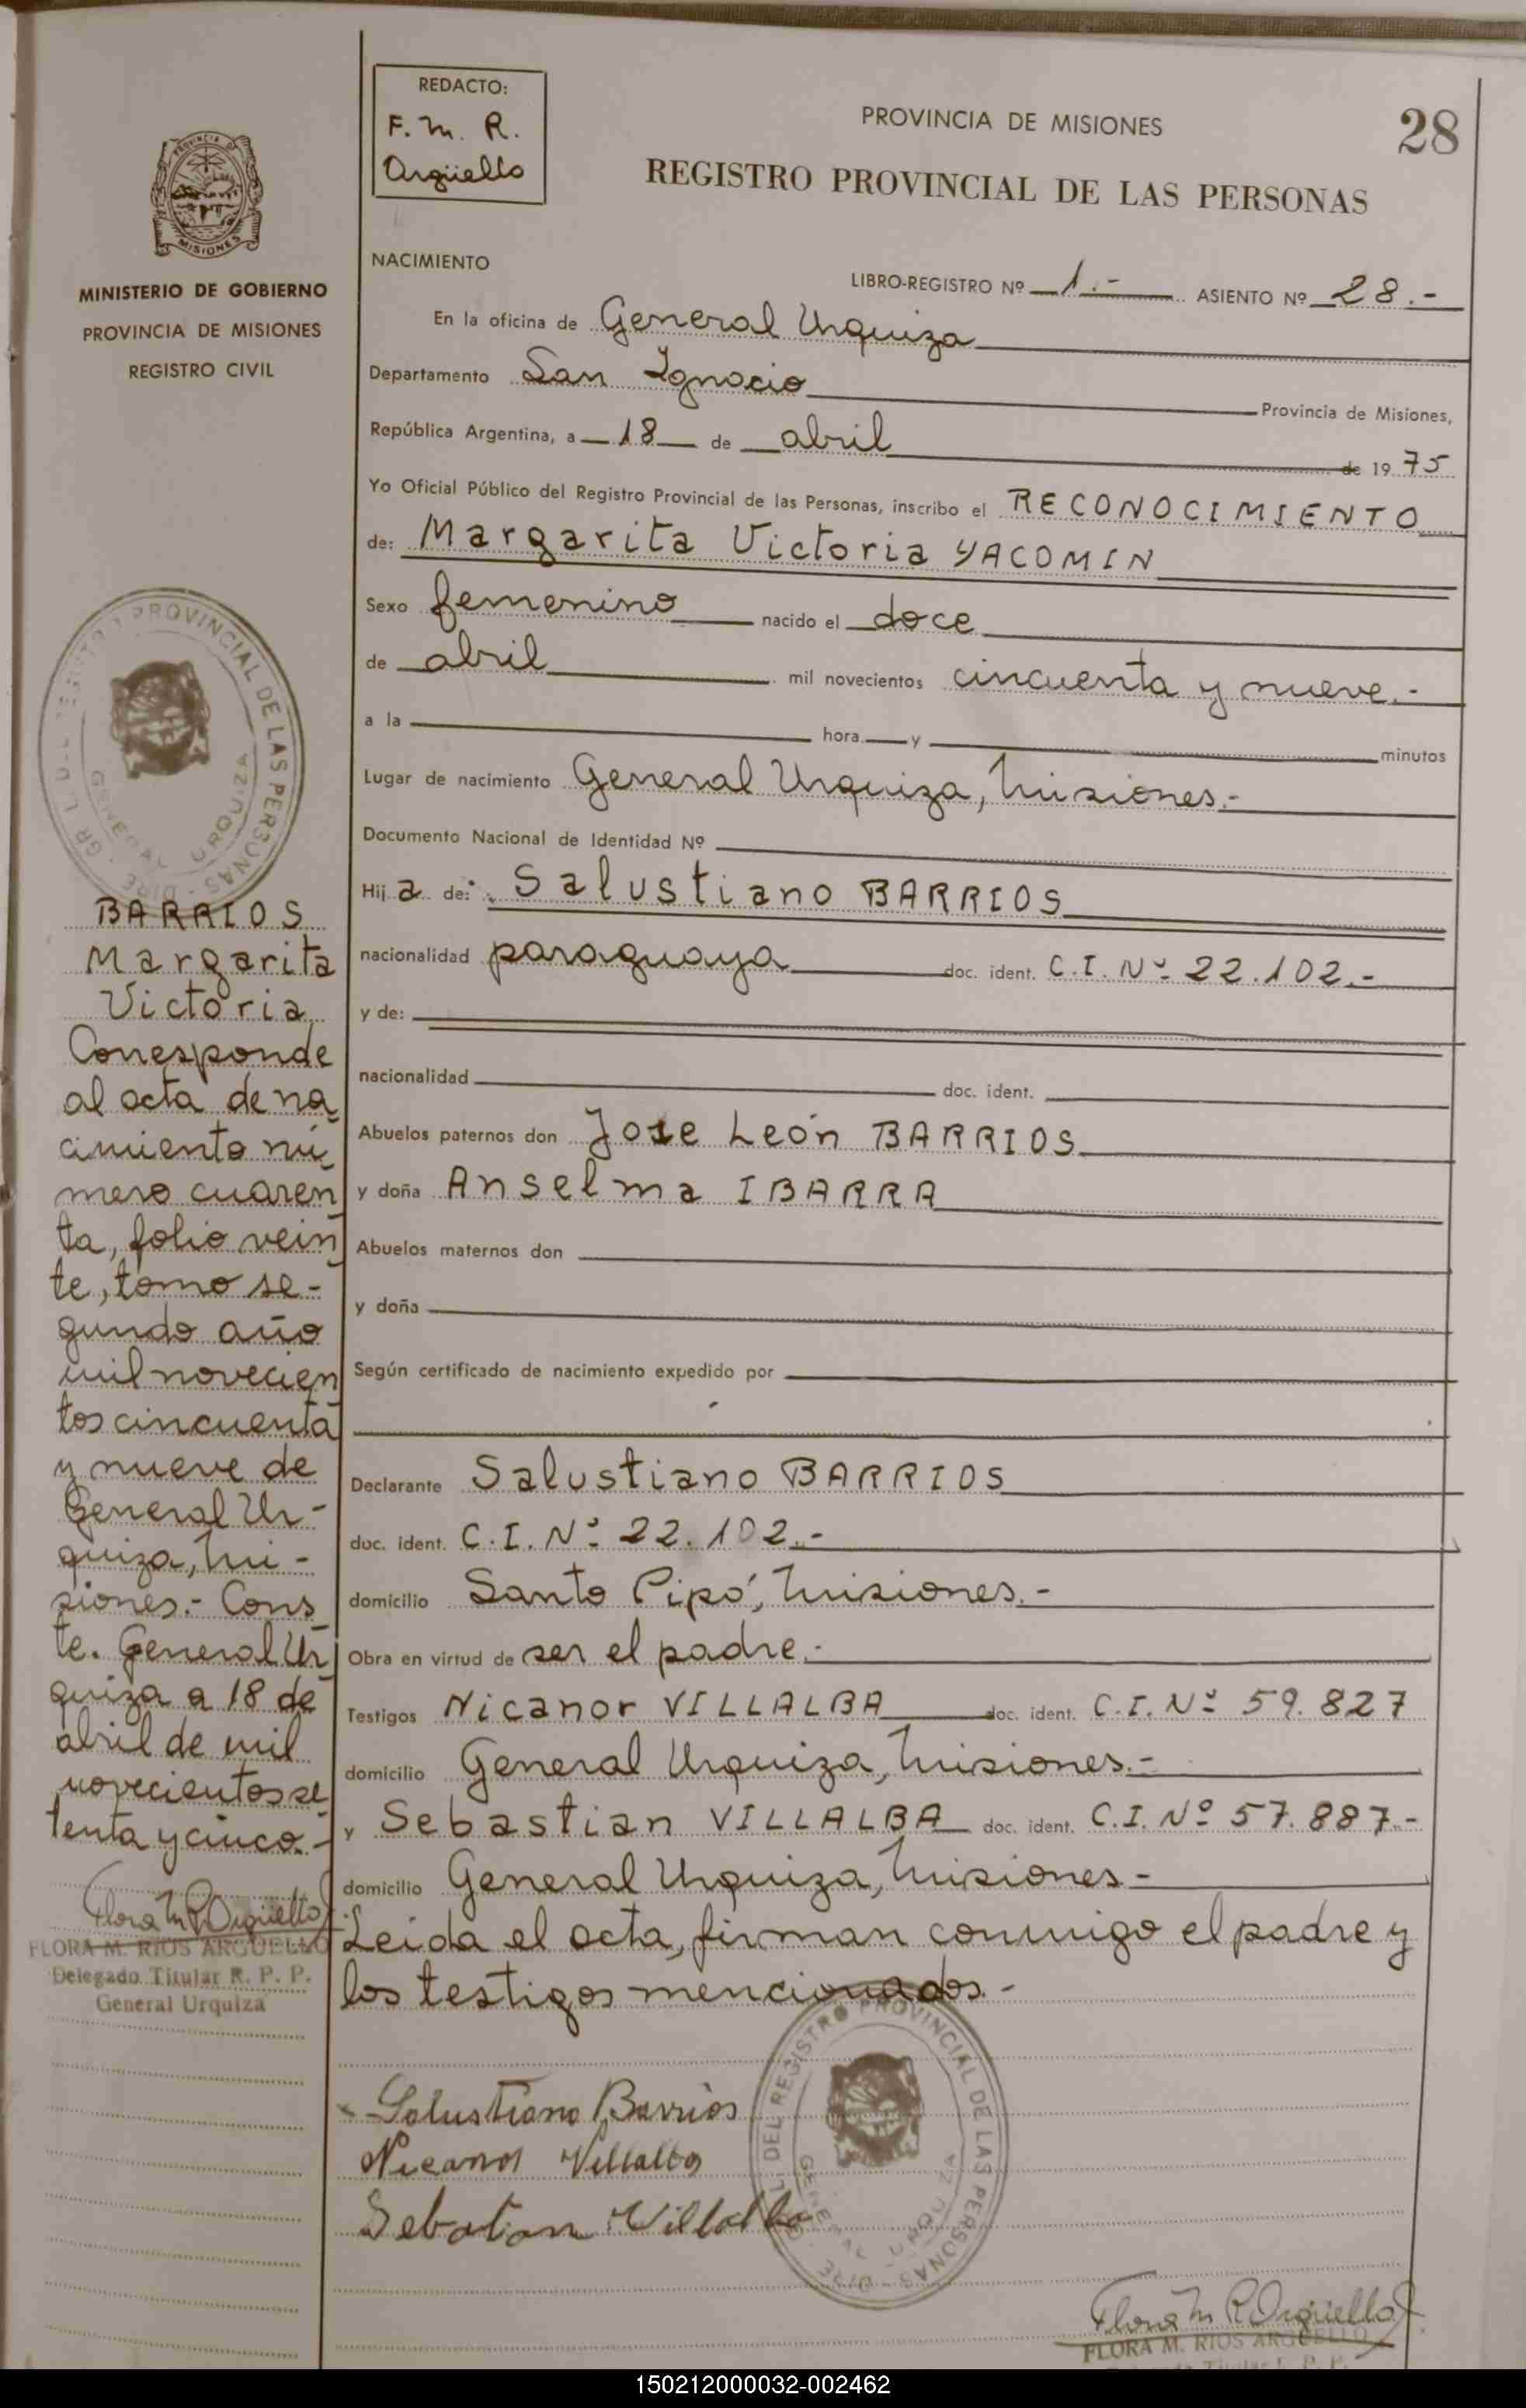 REDACTO:
F. M. R.
Argüello
PROVINCIA DE MISIONES
28
REGISTRO PROVINCIAL DE LAS PERSONAS
MISIONES
MINISTERIO DE GOBIERNO
PROVINCIA DE MISIONES
REGISTRO CIVIL
NACIMIENTO
LIBRO-REGISTRO Nº 1.- ASIENTO Nº 28.-
En la oficina de General Urquiza
Departamento San Ignacio Provincia de Misiones,
República Argentina, a 18 de abril de 1975
Yo Oficial Público del Registro Provincial de las Personas, inscribo el RECONOCIMIENTO
de: Margarita Victoria YACOMIN
Sexo femenino nacido el doce
de abril mil novecientos cincuenta y nueve.-
a la hora y minutos
Lugar de nacimiento General Urquiza, Misiones.-
Documento Nacional de Identidad Nº
Hija de: Salustiano BARRIOS
nacionalidad paraguaya doc. ident. C.I. Nº 22.102.-
y de:
nacionalidad doc. ident.
Abuelos paternos don Jose León BARRIOS
y doña Anselma IBARRA
Abuelos maternos don
y doña
Según certificado de nacimiento expedido por
Declarante Salustiano BARRIOS
doc. ident. C.I. Nº 22.102.-
domicilio Santo Pipó, Misiones.-
Obra en virtud de ser el padre.-
Testigos Nicanor VILLALBA doc. ident. C.I. Nº 59.827
domicilio General Urquiza, Misiones.-
y Sebastian VILLALBA doc. ident. C.I. Nº 57.887.-
domicilio General Urquiza, Misiones-
Leída el acta, firman conmigo el padre y
los testigos mencionados.-
Salustiano Barrios
Nicanor Villalba
Sebatian Villalba
DEL REGISTRO PROVINCIAL DE LAS PERSONAS
GENERAL URQUIZA
Flora M R Argüello
FLORA M. RIOS ARGÜELLO
PROVINCIAL DE LAS PERSONAS
GENERAL URQUIZA
BARRIOS
Margarita
Victoria
Corresponde
al acta de na
cimiento nú
mero cuaren
ta, folio vein
te, tomo se-
gundo año
mil novecien
tos cincuenta
y nueve de
General Ur-
quiza, Mi-
siones.- Cons
te. General Ur
quiza a 18 de
abril de mil
novecientos se
tenta y cinco.-
Flora M R Argüello
FLORA M. RIOS ARGÜELLO
Delegado Titular R. P. P.
General Urquiza
150212000032-002462